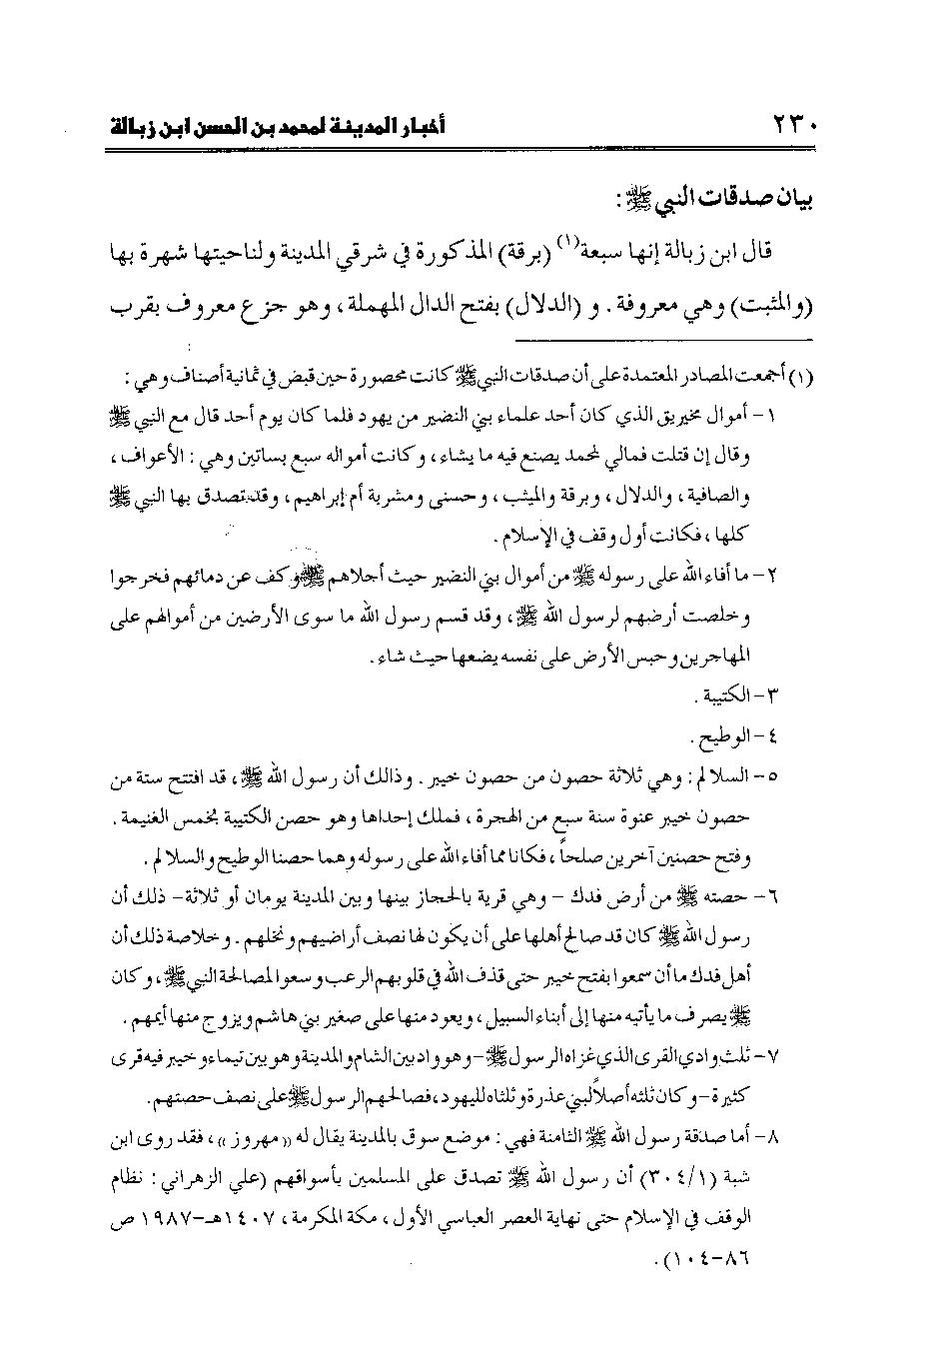 ٢٣٠ أخبار المدينة لمحمد بن الحسن ابن زبالة
بيان صدقات النبي ﷺ :
قال ابن زبالة إنها سبعة(١) (برقة) المذكورة في شرقي المدينة ولناحيتها شهرة بها
(والمثبت) وهي معروفة . و (الدلال) بفتح الدال المهملة ، وهو جزع معروف بقرب
(١) أجمعت المصادر المعتمدة على أن صدقات النبي ﷺ كانت محصورة حين قبض في ثمانية أصناف وهي :
١- أموال مخيريق الذي كان أحد علماء بني النضير من يهود فلما كان يوم أحد قال مع النبي ﷺ
وقال إن قتلت فمالي لمحمد يصنع فيه ما يشاء ، وكانت أمواله سبع بساتين وهي : الأعواف ،
والصافية ، والدلال ، وبرقة والميثب ، وحسنى ومشربة أم إبراهيم ، وقد تصدق بها النبي ﷺ
كلها ، فكانت أول وقف في الإسلام .
٢- ما أفاء الله على رسوله ﷺ من أموال بني النضير حيث أجلاهم ﷺ وكف عن دمائهم فخرجوا
وخلصت أرضهم لرسول الله ﷺ ، وقد قسم رسول الله ما سوى الأرضين من أموالهم على
المهاجرين وحبس الأرض على نفسه يضعها حيث شاء .
٣- الكتيبة .
٤- الوطيح .
٥- السلالم : وهي ثلاثة حصون من حصون خيبر . وذالك أن رسول الله ﷺ ، قد افتتح ستة من
حصون خيبر عنوة سنة سبع من الهجرة ، فملك إحداها وهو حصن الكتيبة بخمس الغنيمة .
وفتح حصنين آخرين صلحاً ، فكانا مما أفاء الله على رسوله وهما حصنا الوطيح والسلالم .
٦- حصته ﷺ من أرض فدك - وهي قرية بالحجاز بينها وبين المدينة يومان أو ثلاثة- ذلك أن
رسول الله ﷺ كان قد صالح أهلها على أن يكون لها نصف أراضيهم ونخلهم . وخلاصة ذلك أن
أهل فدك ما أن سمعوا بفتح خيبر حتى قذف الله في قلوبهم الرعب وسعوا لمصالحة النبي ﷺ ، وكان
ﷺ يصرف ما يأتيه منها إلى أبناء السبيل ، ويعود منها على صغير بني هاشم ويزوج منها أيمهم .
٧- ثلث وادي القرى الذي غزاه الرسول ﷺ - وهو واد بين الشام والمدينة وهو بين تيماء وخيبر فيه قرى
كثيرة - وكان ثلثه أصلاً لبني عذرة وثلثاه لليهود ، فصالحهم الرسول ﷺ على نصف حصتهم .
٨- أما صدقة رسول الله ﷺ الثامنة فهي : موضع سوق بالمدينة يقال له «مهروز» ، فقد روى ابن
شبة (٣٠٤/١) أن رسول الله ﷺ تصدق على المسلمين بأسواقهم (علي الزهراني : نظام
الوقف في الإسلام حتى نهاية العصر العباسي الأول ، مكة المكرمة ، ١٤٠٧هـ-١٩٨٧ ص
٨٦-١٠٤) .